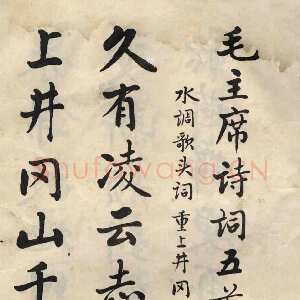 毛主席诗词五首
水调歌头词 重上井冈
久有凌云志
上井冈山千